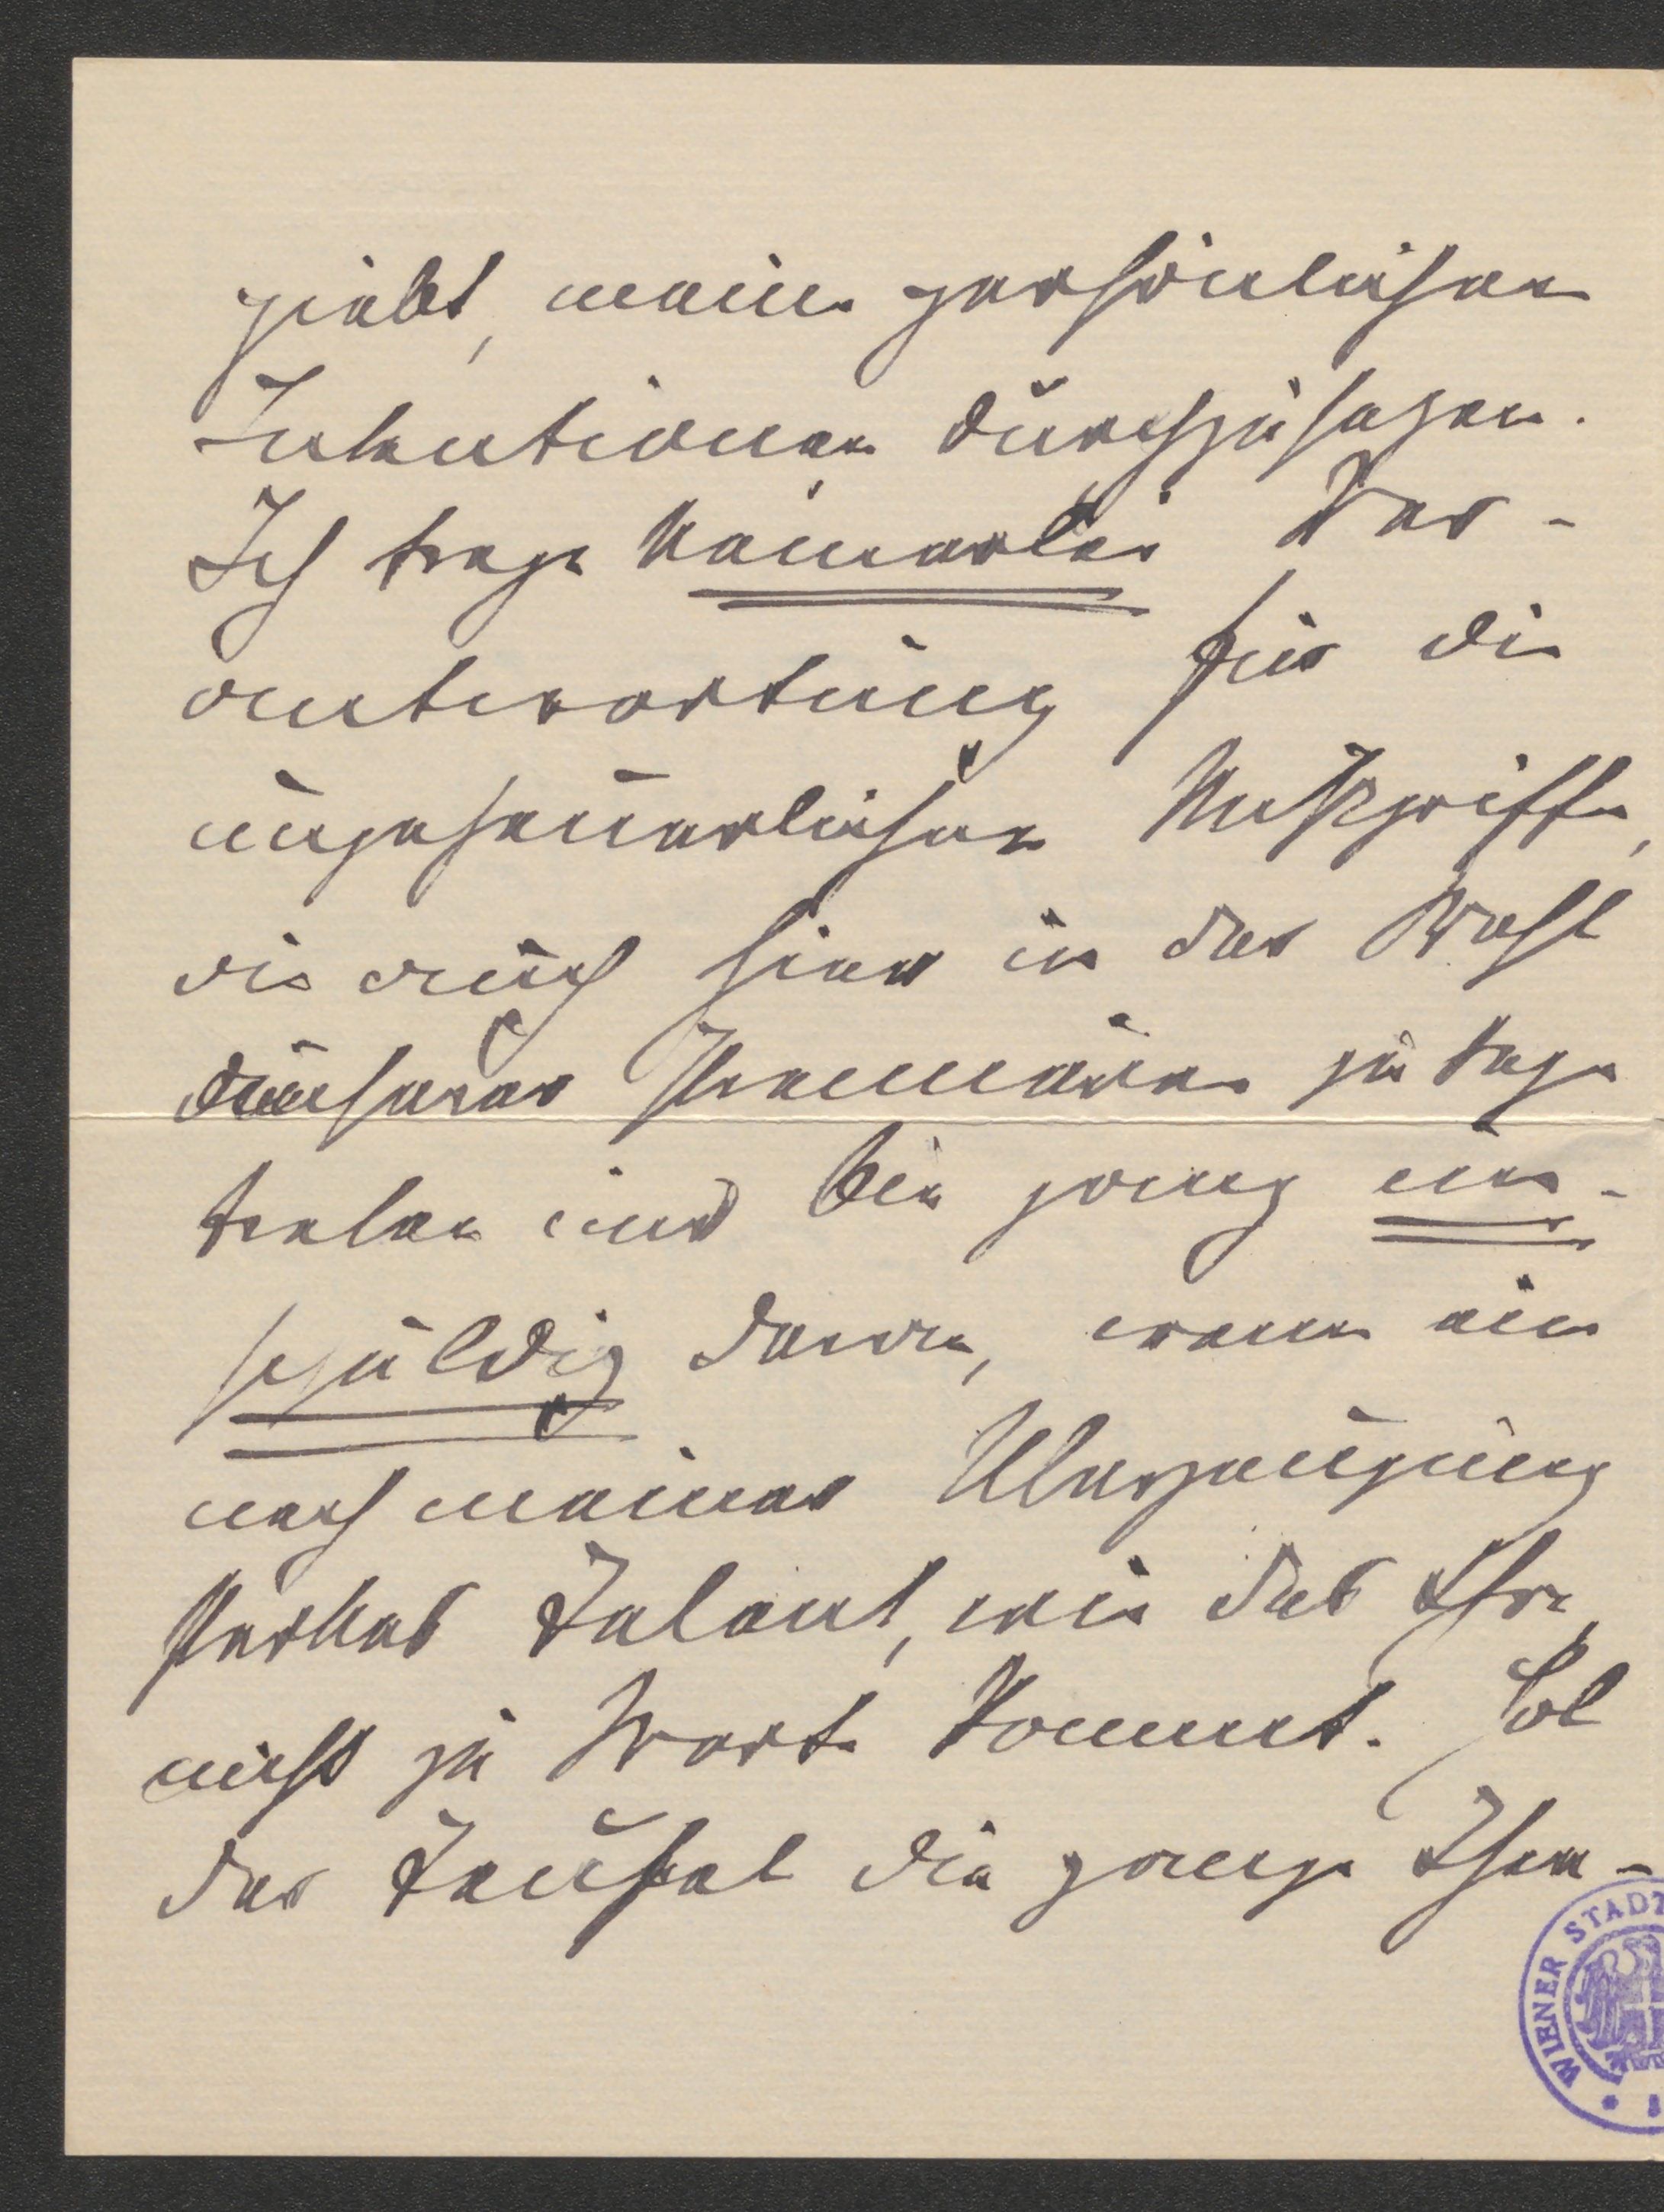 giebt, meine persönlichen
Intentionen durchzusetzen.
Ich trage keinerlei Ver-
antwortung für die
ungeheuerlichen Mißgriffe,
die auch hier in der Wahl
unserer Premièren zu tage
treten und bin ganz un-
schuldig daran, wenn ein
nach meiner Überzeugung
starkes Talent, wie das Ihre,
nicht zu Worte kommt. Hol
der Teufel die ganze Thea-
WIENER STADT